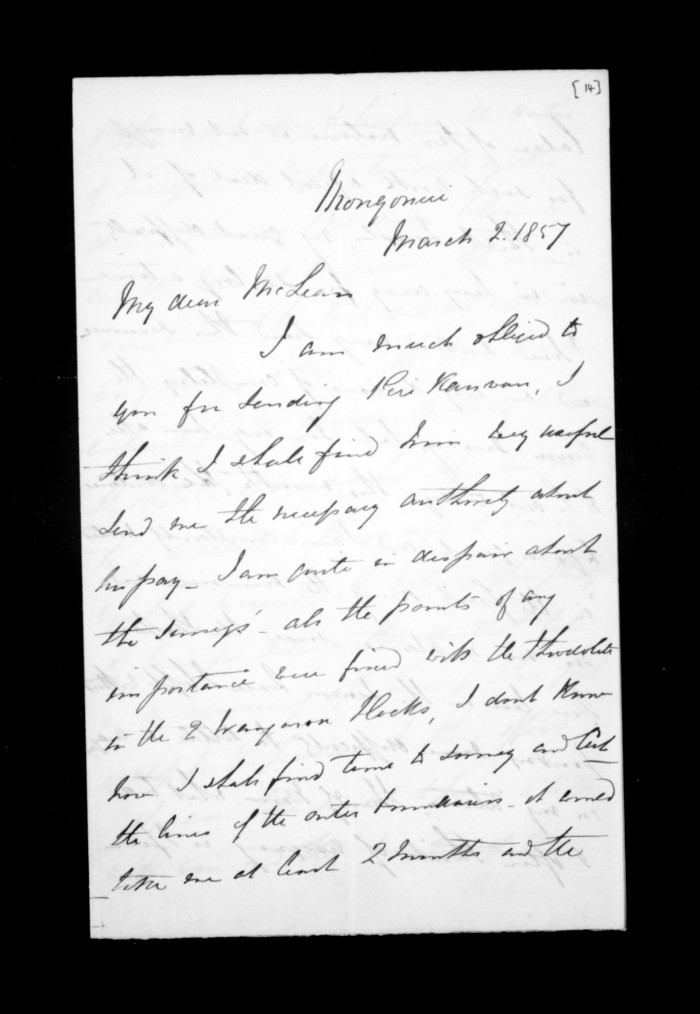 [14]
Mongonui
March 2. 1857
My dear McLean
I am much obliged to
you for sending Piri Kawau, I
think I shall find him very useful
send me the necessary authority about
his pay - I am quite in despair about
the surveys - all the points of any
importance were fixed with the Theodolite
in the 2 Blocks, I dont know
how I shall find time to survey and Cut
the lines of the outer boundaries - it would
take me at least 2 months and the